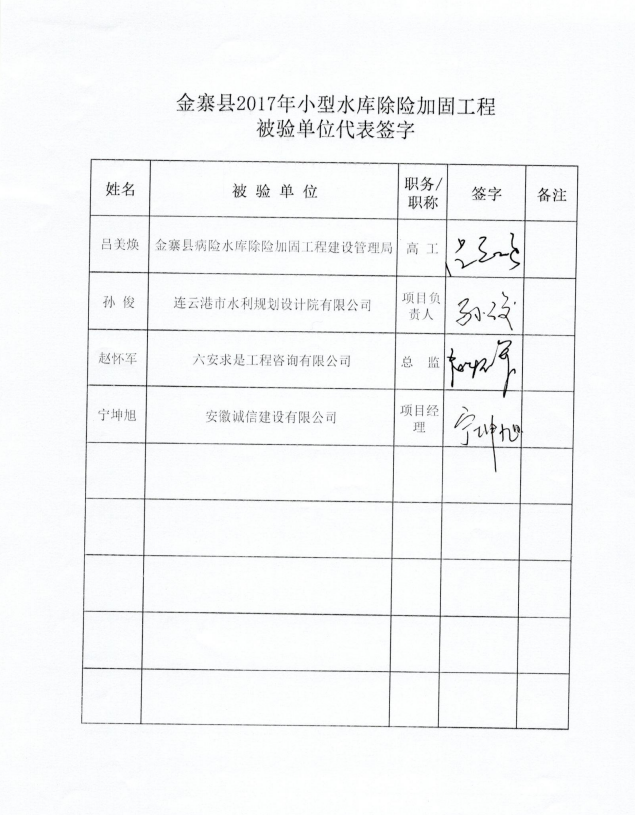 金寨县2017年小型水库除险加固工程
被验单位代表签字
姓名 被验单位 职务/职称 签字 备注
吕美焕 金寨县病险水库除险加固工程建设管理局 高工 吕美焕
孙俊 连云港市水利规划设计院有限公司 项目负责人 孙俊
赵怀军 六安求是工程咨询有限公司 总监 赵怀军
宁坤旭 安徽诚信建设有限公司 项目经理 宁坤旭